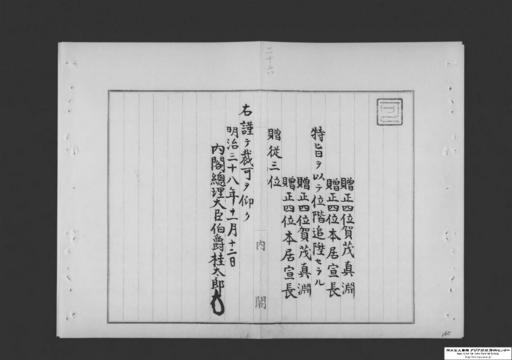 贈正四位賀茂真淵
贈正四位本居宣長
特旨ヲ以テ位階追陞セラル
贈正四位賀茂真淵
贈正四位本居宣長
贈従三位
右謹テ裁可ヲ仰ク
明治三十八年十一月十二日
内閣總理大臣伯爵桂太郎
内閣
二十六